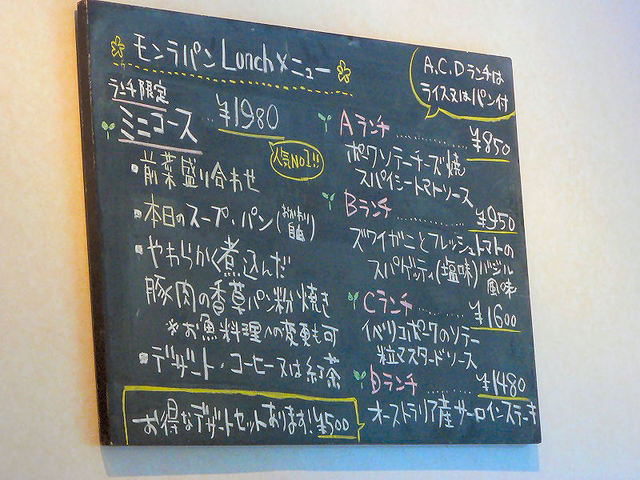 モンラパン Lunchメニュー
A.C.D ランチは
ライス又はパン付
ランチ限定
ミニコース ¥1980
人気NO1!!
・前菜盛り合わせ
・本日のスープ・パン(おかわり自由)
・やわらかく煮込んだ
豚肉の香草パン粉焼き
※お魚料理への変更も可
・デザート・コーヒー又は紅茶
お得なデザートセットあります! ¥500
Aランチ ¥850
ポークソテーチーズ焼
スパイシートマトソース
Bランチ ¥950
ズワイガニとフレッシュトマトの
スパゲッティ(塩味)バジル風味
Cランチ ¥1600
イベリコポークのソテー
粒マスタードソース
Dランチ ¥1480
オーストラリア産サーロインステーキ